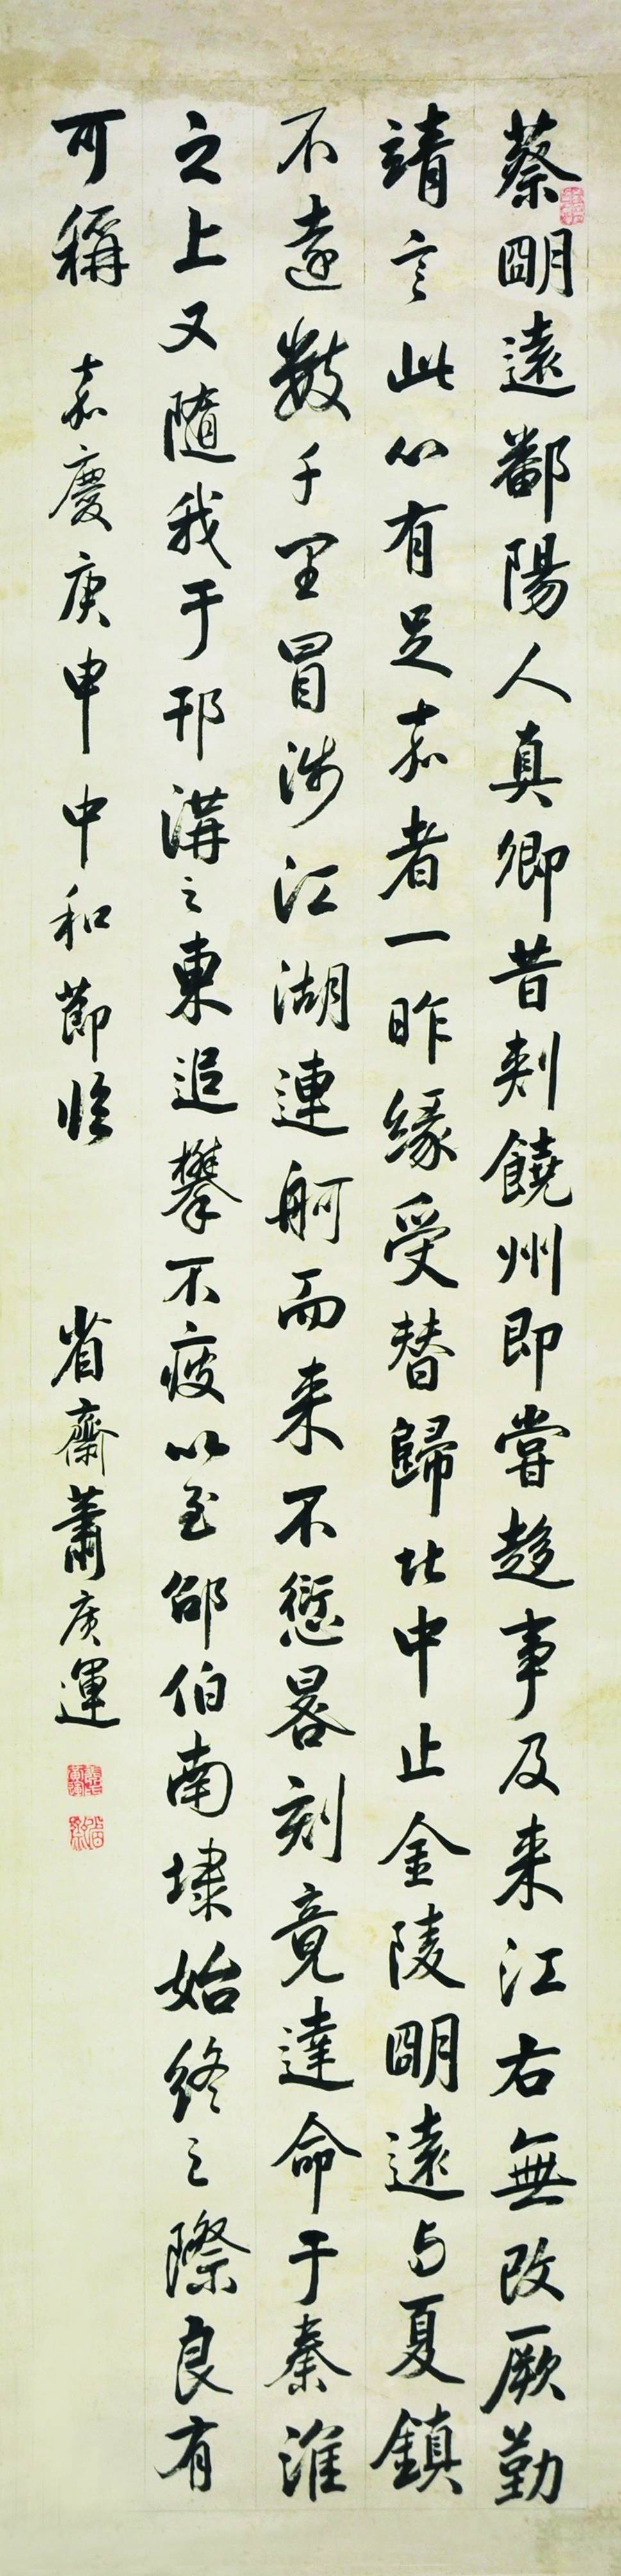 蔡明遠鄱陽人真卿昔刺饒州即嘗趍事及来江右無改厥勤
靖言此心有足嘉者一昨緣受替歸北中止金陵明遠与夏鎮
不遠數千里冒涉江湖連舸而来不愆晷刻竟達命于秦淮
之上又隨我于邗溝之東追攀不疲以至邵伯南埭始終之際良有
可稱 嘉慶庚申中和節臨 省齋蕭廣運